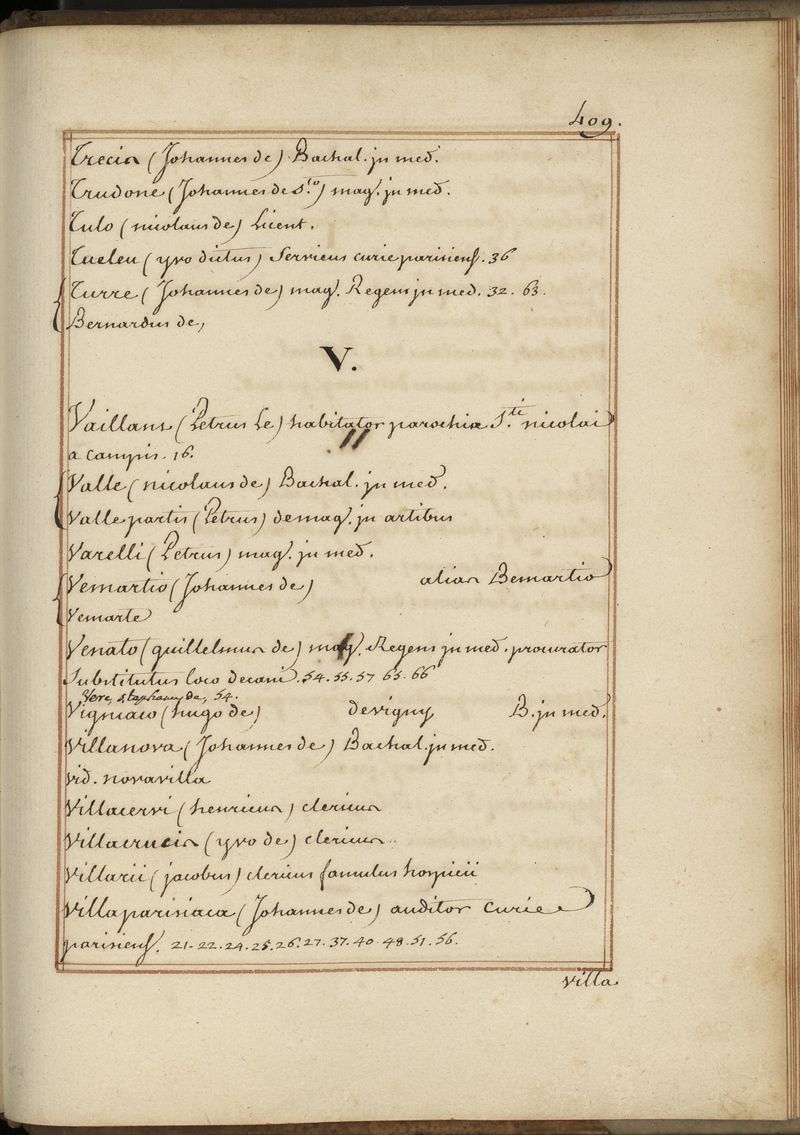 409.
Trecis (Johannes de) Bachal. jn med.
Trudone (Johannes de S.to) mag. jn med.
Tulo (nicolaus de) Licent.
Tueleu (yvo dictus) Serviens curie parisiens. 36
Turre (Johannes de) mag. Regens jn med. 32. 63.
Bernardus de,
V.
Vaillans (Petrus Le) habitator parochia S.ti nicolai
a campis. 16.
Valle (nicolaus de) Bachal. jn med.
Valle partis (Petrus) de mag. jn artibus
Varelli (Petrus) mag. jn med.
Vemartio (Johannes de) alias Bemartio
Vemarte
Venato (guillelmus de) mag. Regens jn med. procurator
Substitutus loco decani. 54. 55. 57 65. 66
Vere, stephanus de, 54.
Vigniaco (hugo de) devigny B. jn med.
Villanova (Johannes de) Bachal. jn med.
vid. novavilla
Villacervi (henricus) clericus
Villacrucis (yvo de) clericus
Villarii (jacobus) clericus famulus hospicii
Villaparisiaca (Johannes de) auditor curie
parisiens. 21. 22. 24. 25. 26. 27. 37. 40. 48. 51. 56.
villa.